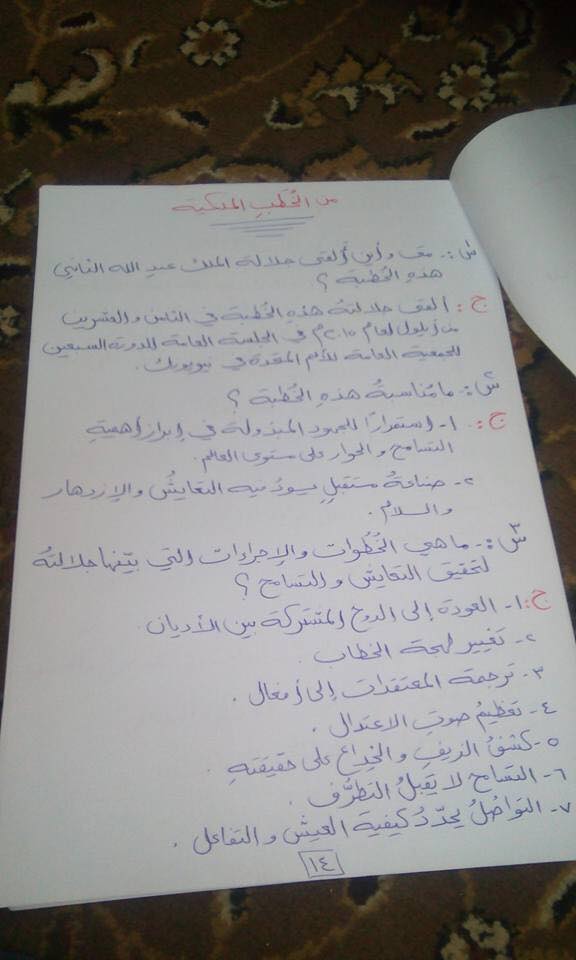 من الخُطبِ الملكية
س:- متى وأين ألقى جلالة الملك عبد الله الثاني
هذهِ الخُطبة ؟
ج: ألقى جلالتهُ هذهِ الخُطبة في الثامن والعشرين
من أيلول لعام ٢٠١٥م في الجلسة العامة للدورة السبعين
للجمعية العامة للأمم المتحدة في نيويورك.
س:- ما مُناسبةُ هذهِ الخُطبة ؟
ج:- ١- استمرارًا للجهود المبذولة في إبراز أهميةِ
التسامح والحوار على مستوى العالم.
٢- صناعةُ مستقبلٍ يسودُ فيه التعايشُ والإزدهار
والسلام.
س:- ما هي الخُطوات والإجراءات التي بيّنها جلالتهُ
لتحقيق التعايش والتسامح ؟
ج:١- العودة إلى الروح المشتركة بين الأديان.
٢- تغيير لهجة الخطاب.
٣- ترجمة المعتقدات إلى أفعال.
٤- تعظيمُ صوتِ الاعتدال.
٥- كشفُ الزيفِ والخِداعِ على حقيقتهِ.
٦- التسامح لا يقبلُ التطرُّف.
٧- التواصُلُ يحدّدُ كيفية العيش والتفاعل.
١٤